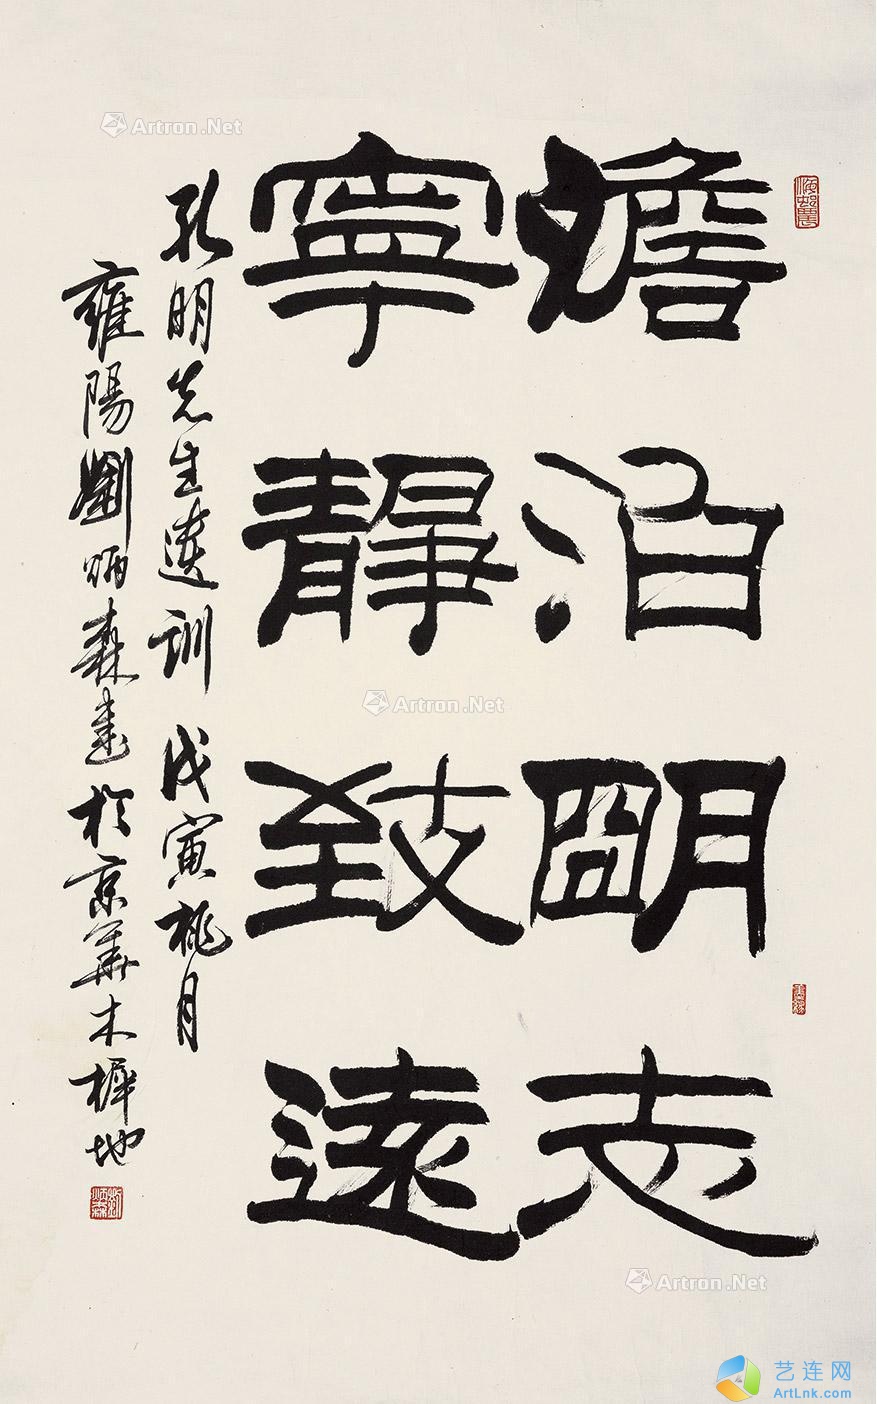 Artron.Net
憺泊朙志
寧靜致遠
孔明先生遺訓 戊寅桃月
雍陽劉炳森書於京華木樨地
炳森 劉
Artron.Net
Artron.Net
艺连网
ArtLnk.com